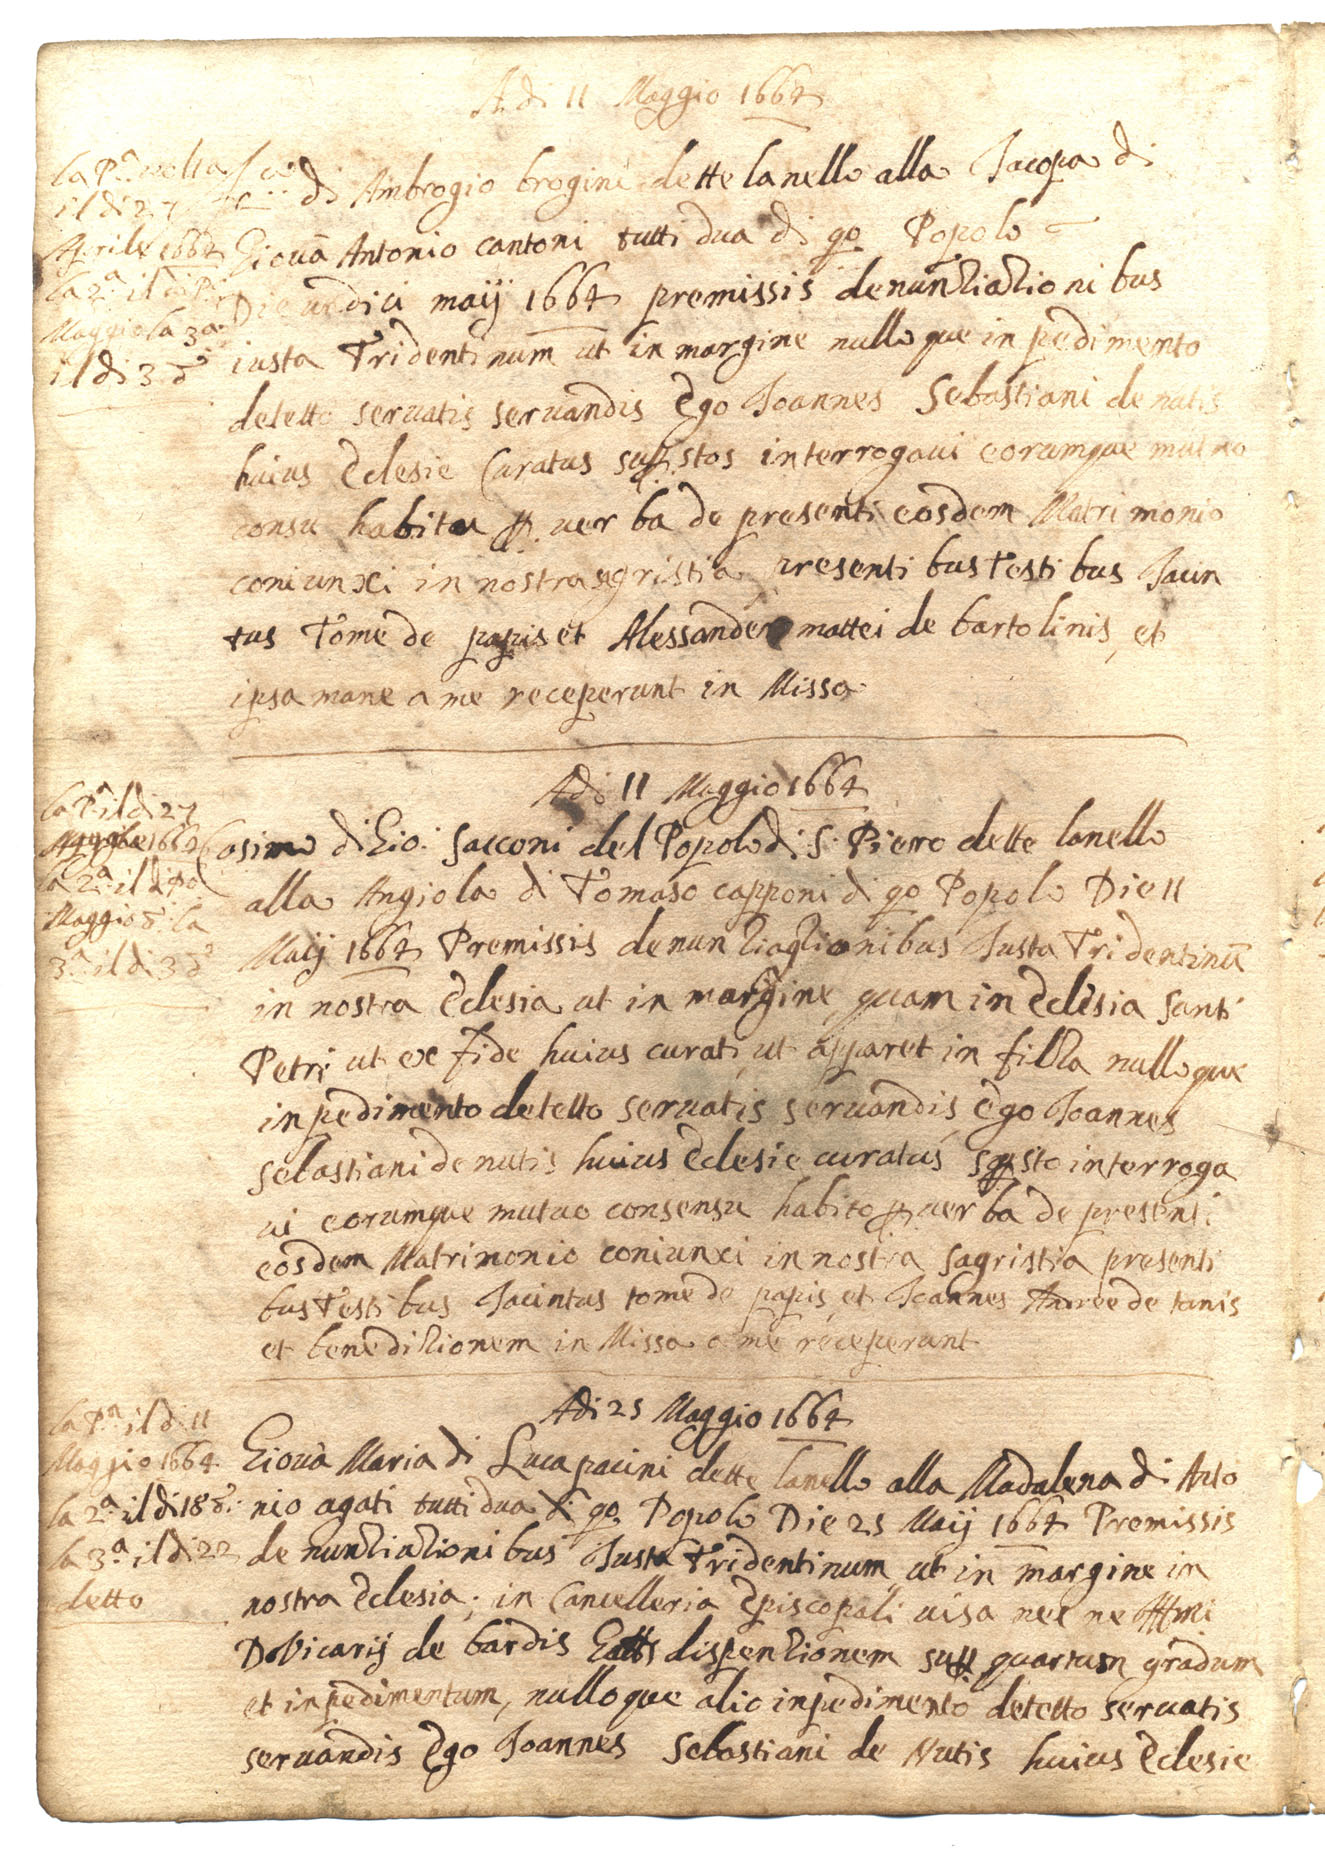 A di 11 Maggio 1664
la P.a volta
il di 27
Aprile 1664
la 2.a il di P.o
Maggio la 3.a
il di 3 d.o
di Ambrogio brogini dette lanello alla Jacopa di
Giovā Antonio cantoni tutti dua di qo Popolo
Die undici maij 1664 premissis denuntiationibus
iusta Tridentinum ut in margine nulloque inpedimento
detetto servatis servandis Ego Joannes Sebastiani de nutis
huius Eclesie Curatus sup.stos interrogaui eorumque mutuo
consu habito p. uerba de presenti eosdem Matrimonio
coniunxi in nostra sagristia, presentibus Testibus Jacin
tus Tome de papis et Alessander mattei de bartolinis, et
ipsa mane a me receperunt in Missa
Adi 11 Maggio 1664
la P.a il di 27
Aprile 1664
la 2.a il di P.o
Maggio d.o la
3.a il di 3 d.o
Cosimo di Gio: Sacconi del Popolo di S. Piero dette lanello
alla Angiola di Tomaso capponi di qo Popolo Die 11
Maij 1664 Premissis denuntiationibus Justa Tridentinū
in nostra Eclesia ut in margine, quam in Eclesia Santi
Petri ut ex fide huius curati, ut apparet in filza nulloque
inpedimento detetto servatis servandis, Ego Joannes
Sebastiani de nutis huius Eclesie curatus supsto interroga
ui eorumque mutuo consensu habito p. uerba de presenti
eosdem Matrimonio coniunxi in nostra sagristia presenti
bus Testibus Jacintus tome de papis, et Joannes Andree de tanis
et beneditionem in Missa a me receperunt
Adi 25 Maggio 1664
la P.a il di 11
Maggio 1664
la 2.a il di 18 d.o
la 3.a il di 22
detto
Giovā Maria di Luca pacini dette lanello alla Madalena di Anto
nio agati tutti dua di qo Popolo Die 25 Maij 1664 Premissis
denuntiationibus Justa Tridentinum ut in margine in
nostra Eclesia; in Cancelleria Episcopali uisa
D. Vicarij de bardis dispentionem sup quartum gradum
et inpedimentum, nulloque alio inpedimento detetto servatis
servandis Ego Joannes Sebastiani de Nutis huius Eclesie